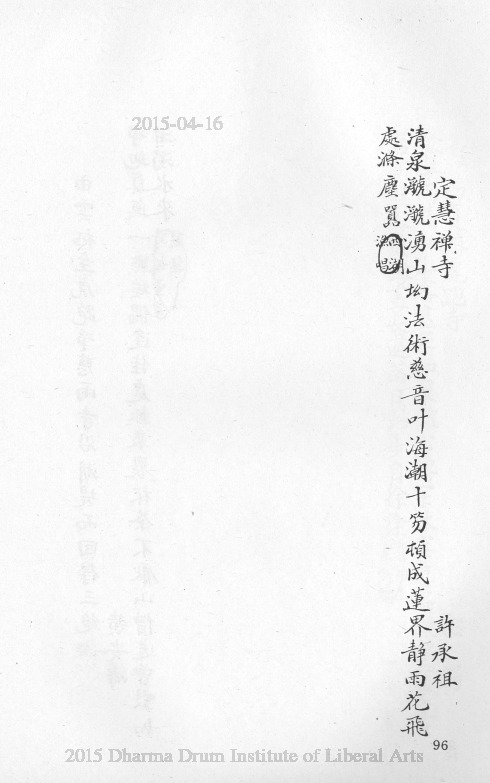 2015-04-16
定慧禅寺 許承祖
清泉㶁㶁湧山坳法術慈音叶海潮十笏頓成蓮界靜雨花飛
處滌塵囂
西湖
漁唱
96
2015 Dharma Drum Institute of Liberal Arts